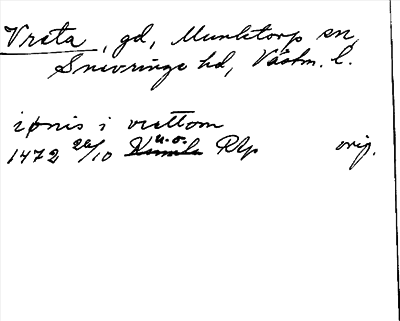 Vreta, gd, Munktorp sn,
Snevringe hd, Västm. l.
ipnis i vrettom
1472 28/10 u.o. Rp orig.